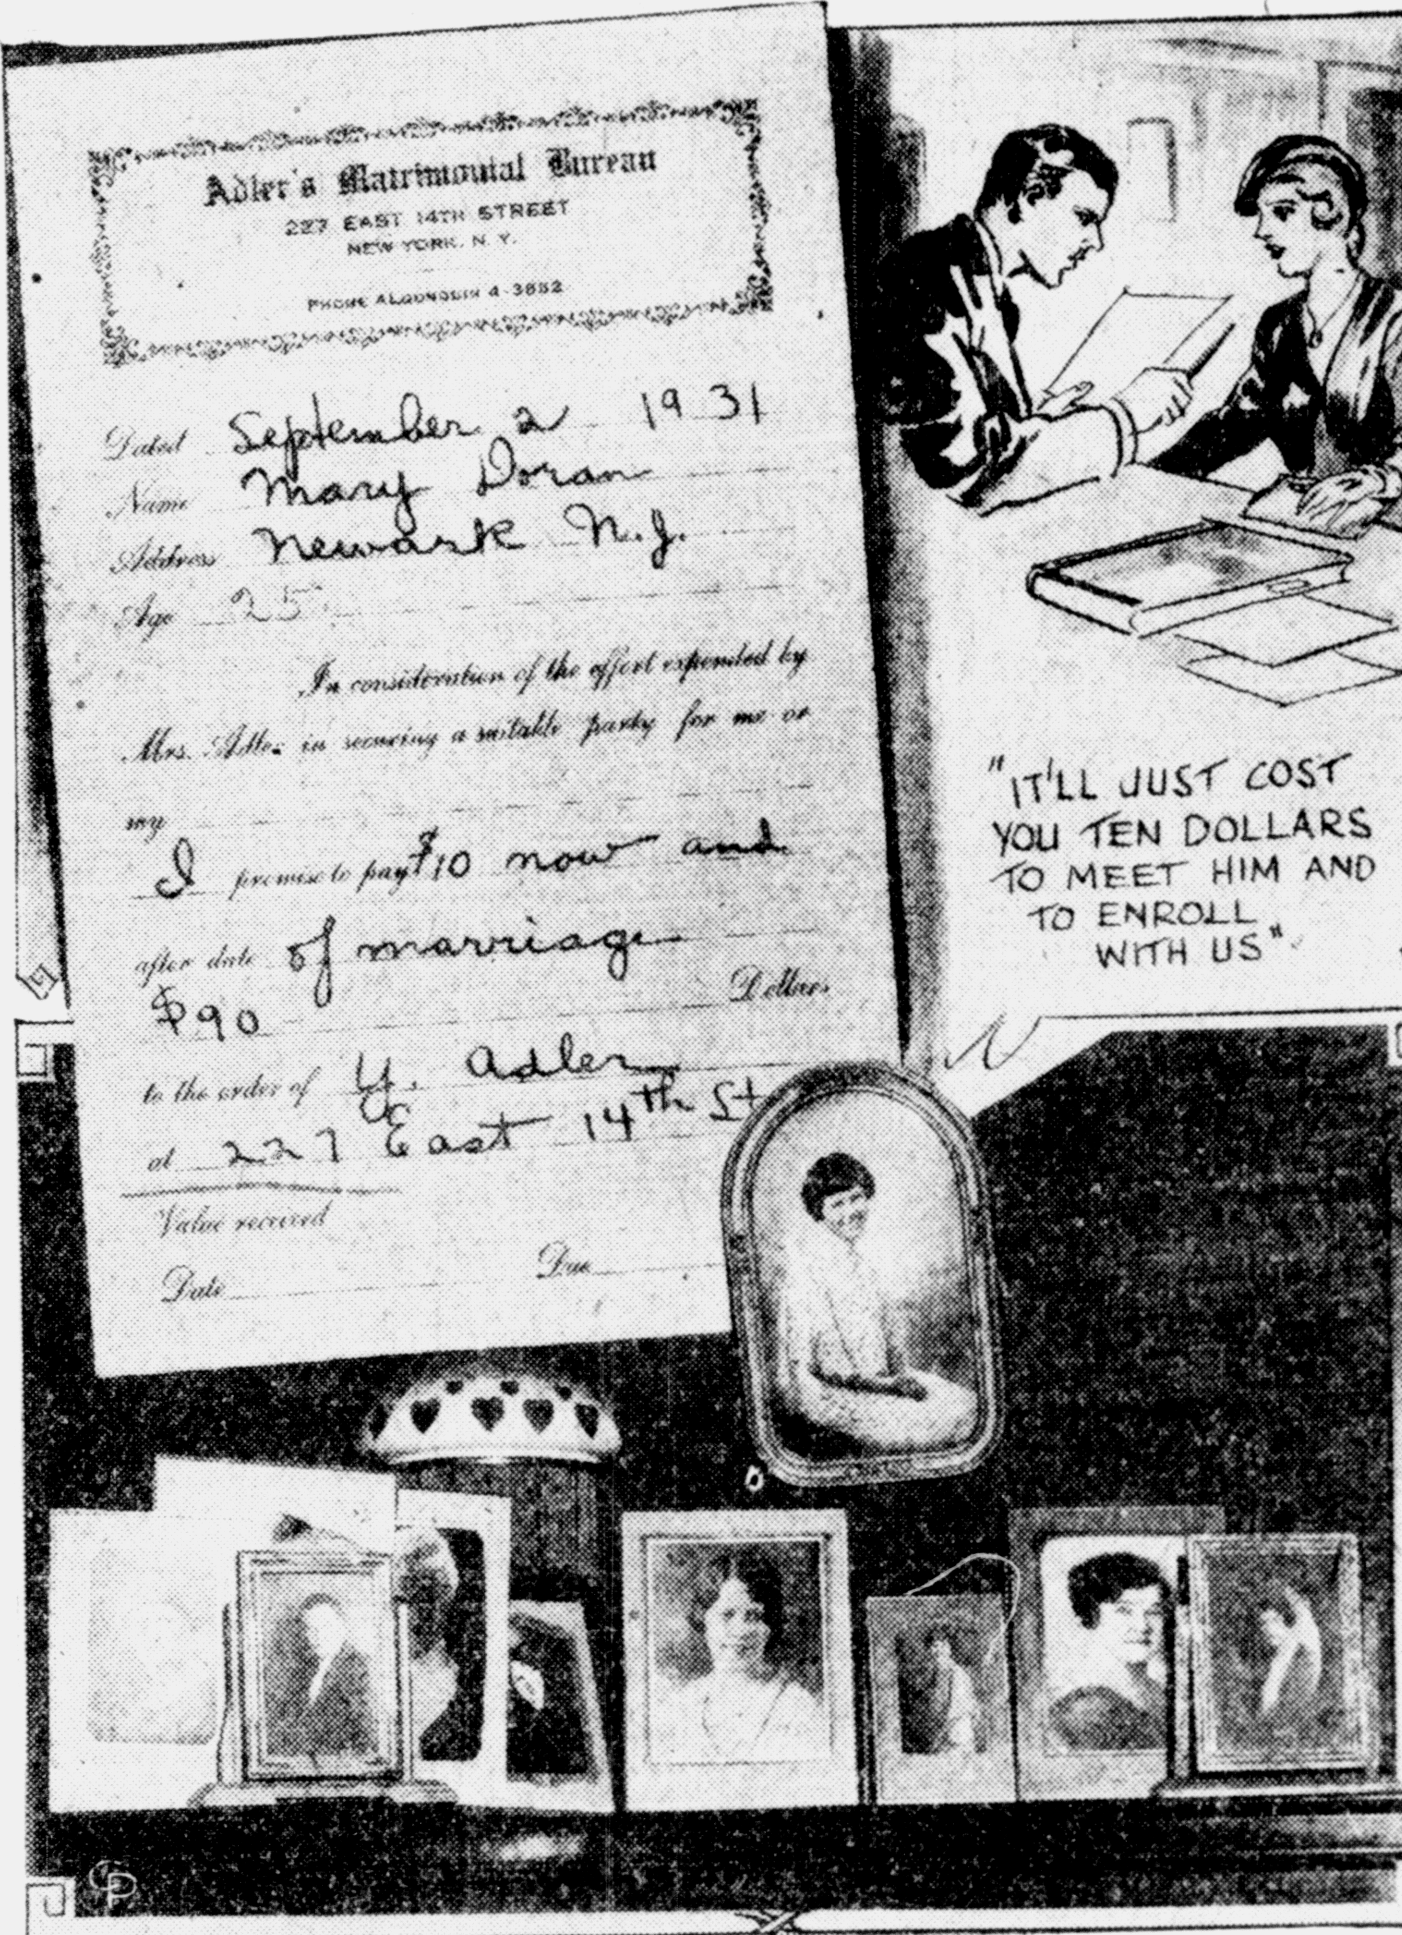 Adler's Matrimonial Bureau
227 EAST 14TH STREET
NEW YORK, N. Y.
PHONE ALGONQUIN 4-3652
Dated September 2 1931
Name Mary Doran
Address Newark N.J.
Age 25
In consideration of the effort expended by
Mrs. Adler in securing a suitable party for me or
my
I promise to pay $10 now and
after date of marriage
$90 Dollars
to the order of Y. Adler
at 227 East 14th St
Value received
Date Due
"IT'LL JUST COST
YOU TEN DOLLARS
TO MEET HIM AND
TO ENROLL
WITH US"
CP